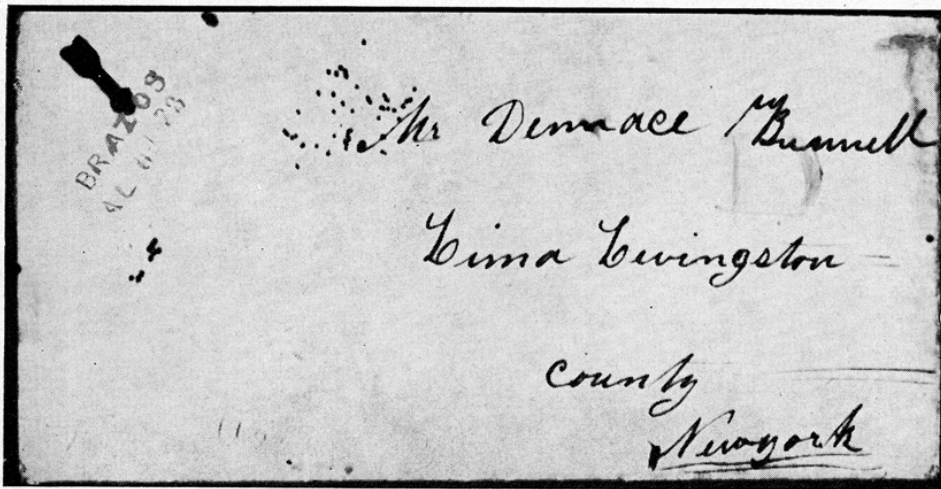 BRAZOS
Mr Dennace M Bunnell
Lima Livingston
county
Newyork